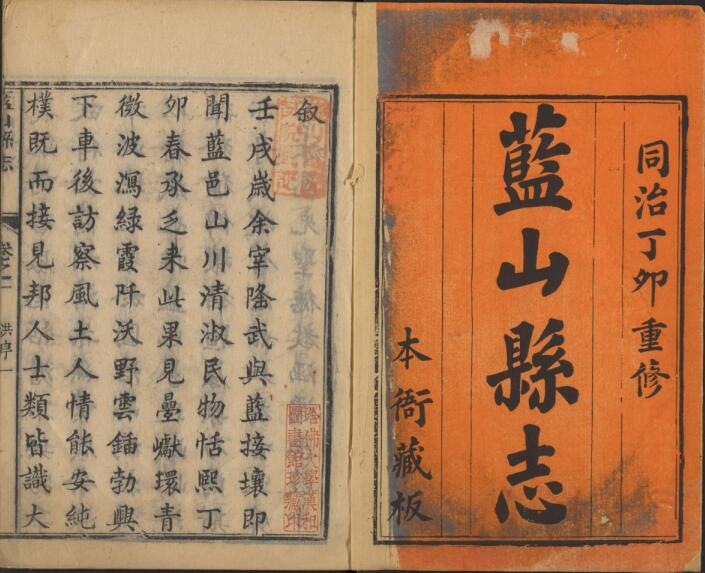 同治丁卯重修
藍山縣志
本衙藏板
叙
壬戌歲余宰隆武與藍接壤即
聞藍邑山川清淑民物恬熙丁
卯春承乏来此果見疊巘環青
微波瀉綠霞阡沃野雲鍤勃興
下車後訪察風土人情能安純
樸既而接見邦人士類皆識大
藍山縣志
卷之一
洪序一
哈佛大學漢和
圖書館珍藏印